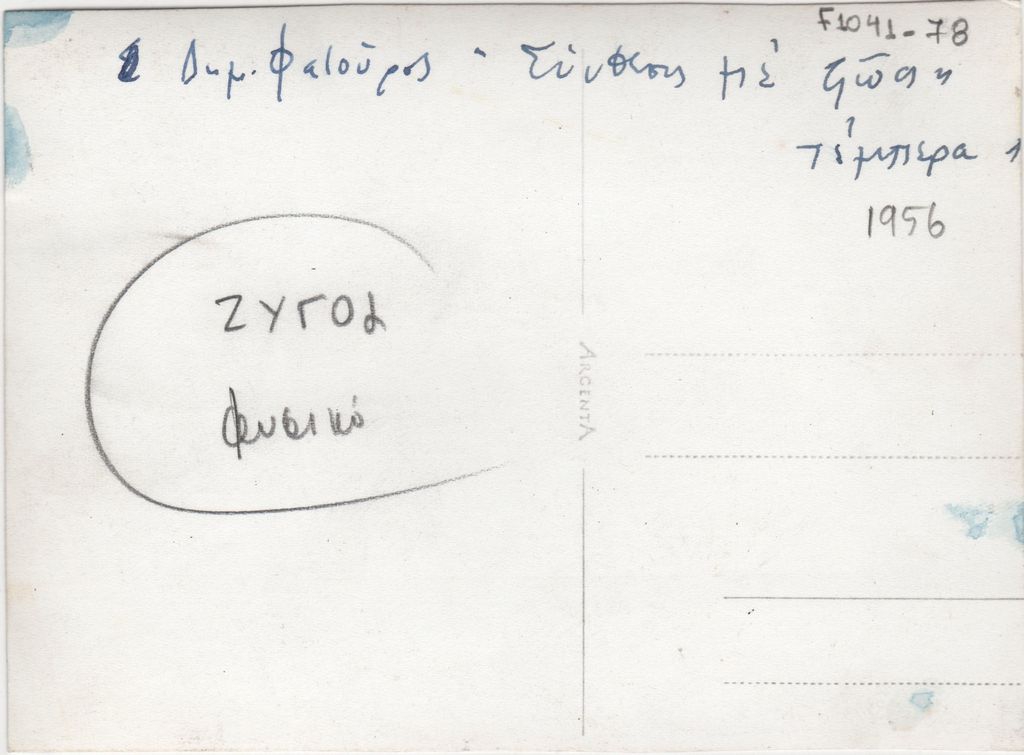 F1041-78
Δημ. Φατούρος - Σύνθεσις μέ
τέμπερα
1956
ΖΥΓΟΣ
φυσικό
ARGENTA